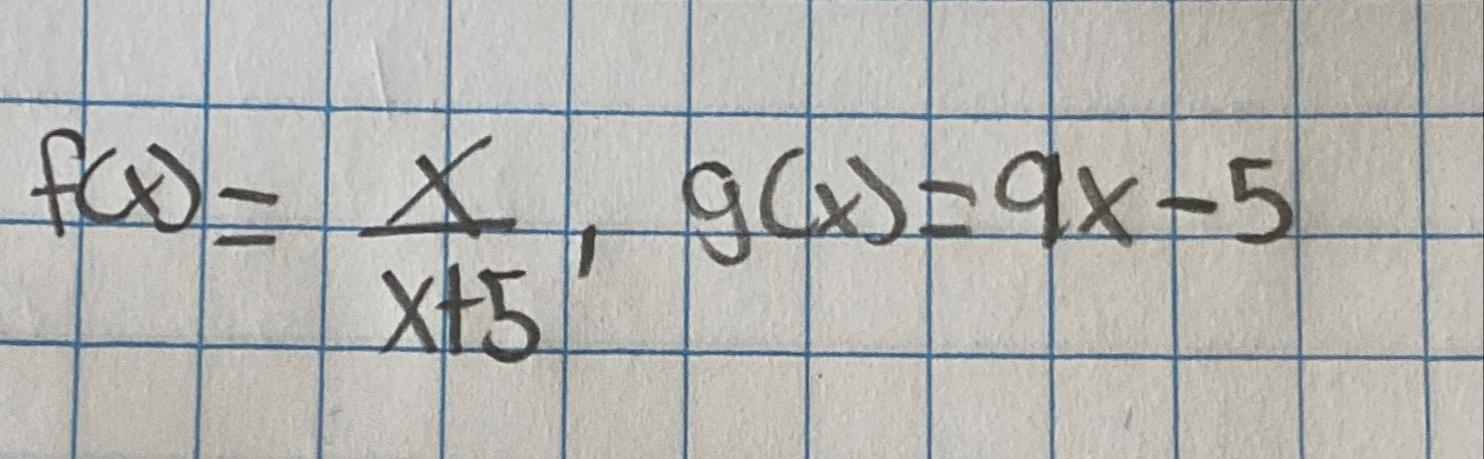 f(x) = x/(x+5), g(x) = 9x-5